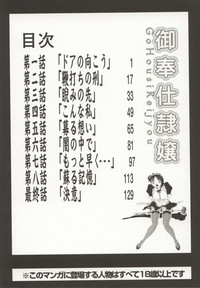 御奉仕隷嬢
GoHousiReijyou
目次
第一話「ドアの向こう」 1
第二話「鞭打ちの刑」 17
第三話「睨みの先」 33
第四話「こんな私」 49
第五話「募る想い」 65
第六話「闇の中で」 81
第七話「もっと早く・・・」 97
第八話「蘇る記憶」 113
最終話「決意」 129
※このマンガに登場する人物はすべて18歳以上です